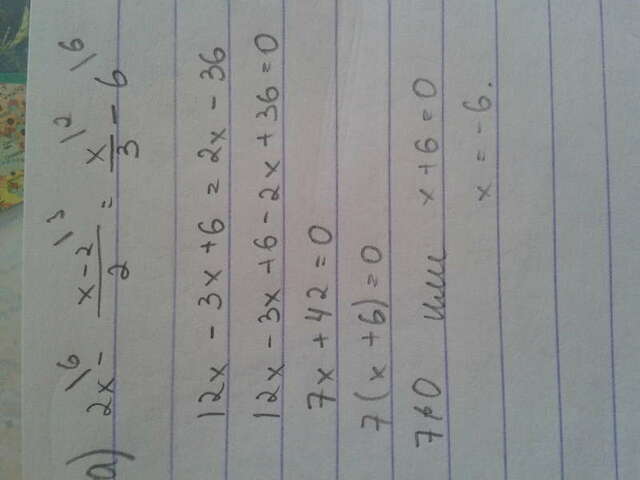 а) 2x\6 - x-2\3/2 = x\2/3 - 6\6
12x - 3x + 6 = 2x - 36
12x - 3x + 6 - 2x + 36 = 0
7x + 42 = 0
7(x + 6) = 0
7≠0 или x + 6 = 0
x = -6.